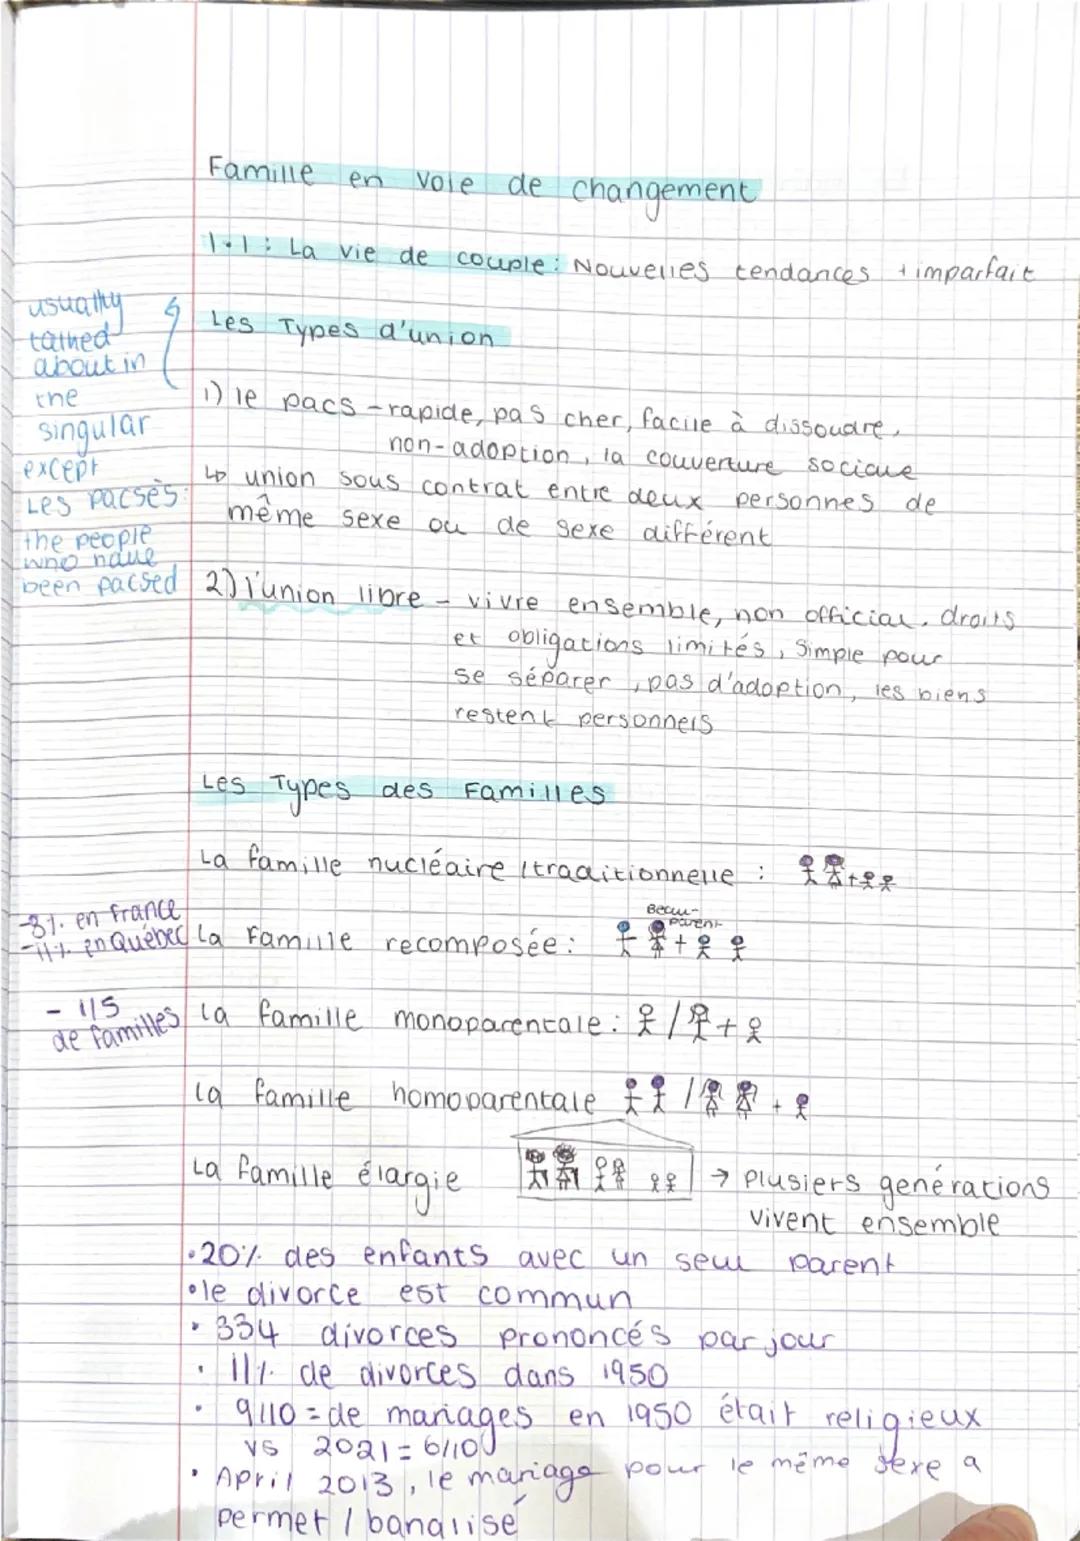 Famille en voie de changement
1.1: La vie de couple: Nouvelles tendances + imparfait
Les Types d'union
usually
talked
about in
the
singular
except
Les pacsés:
the people
who have
been pacsed
1) le pacs - rapide, pas cher, facile à dissoudre,
non-adoption, la couverture sociale
↳ union sous contrat entre deux personnes de
même sexe ou de sexe différent
2) l'union libre - vivre ensemble, non official. droits
et obligations limités, simple pour
se séparer, pas d'adoption, les biens
restent personnels
Les Types des Familles
La famille nucléaire / traditionnelle :
-8% en france
-11% en Québec
Beau-
parent
La Famille recomposée:
- 1/5
de familles
la famille monoparentale:
la famille homoparentale
La famille élargie → plusiers genérations
vivent ensemble
• 20% des enfants avec un seul parent
• le divorce est commun
• 334 divorces prononcés par jour
• 11% de divorces dans 1950
• 9/10 = de mariages en 1950 était religieux
vs 2021 = 6/10
• April 2013, le mariage pour le même sexe a
permet / banalisé